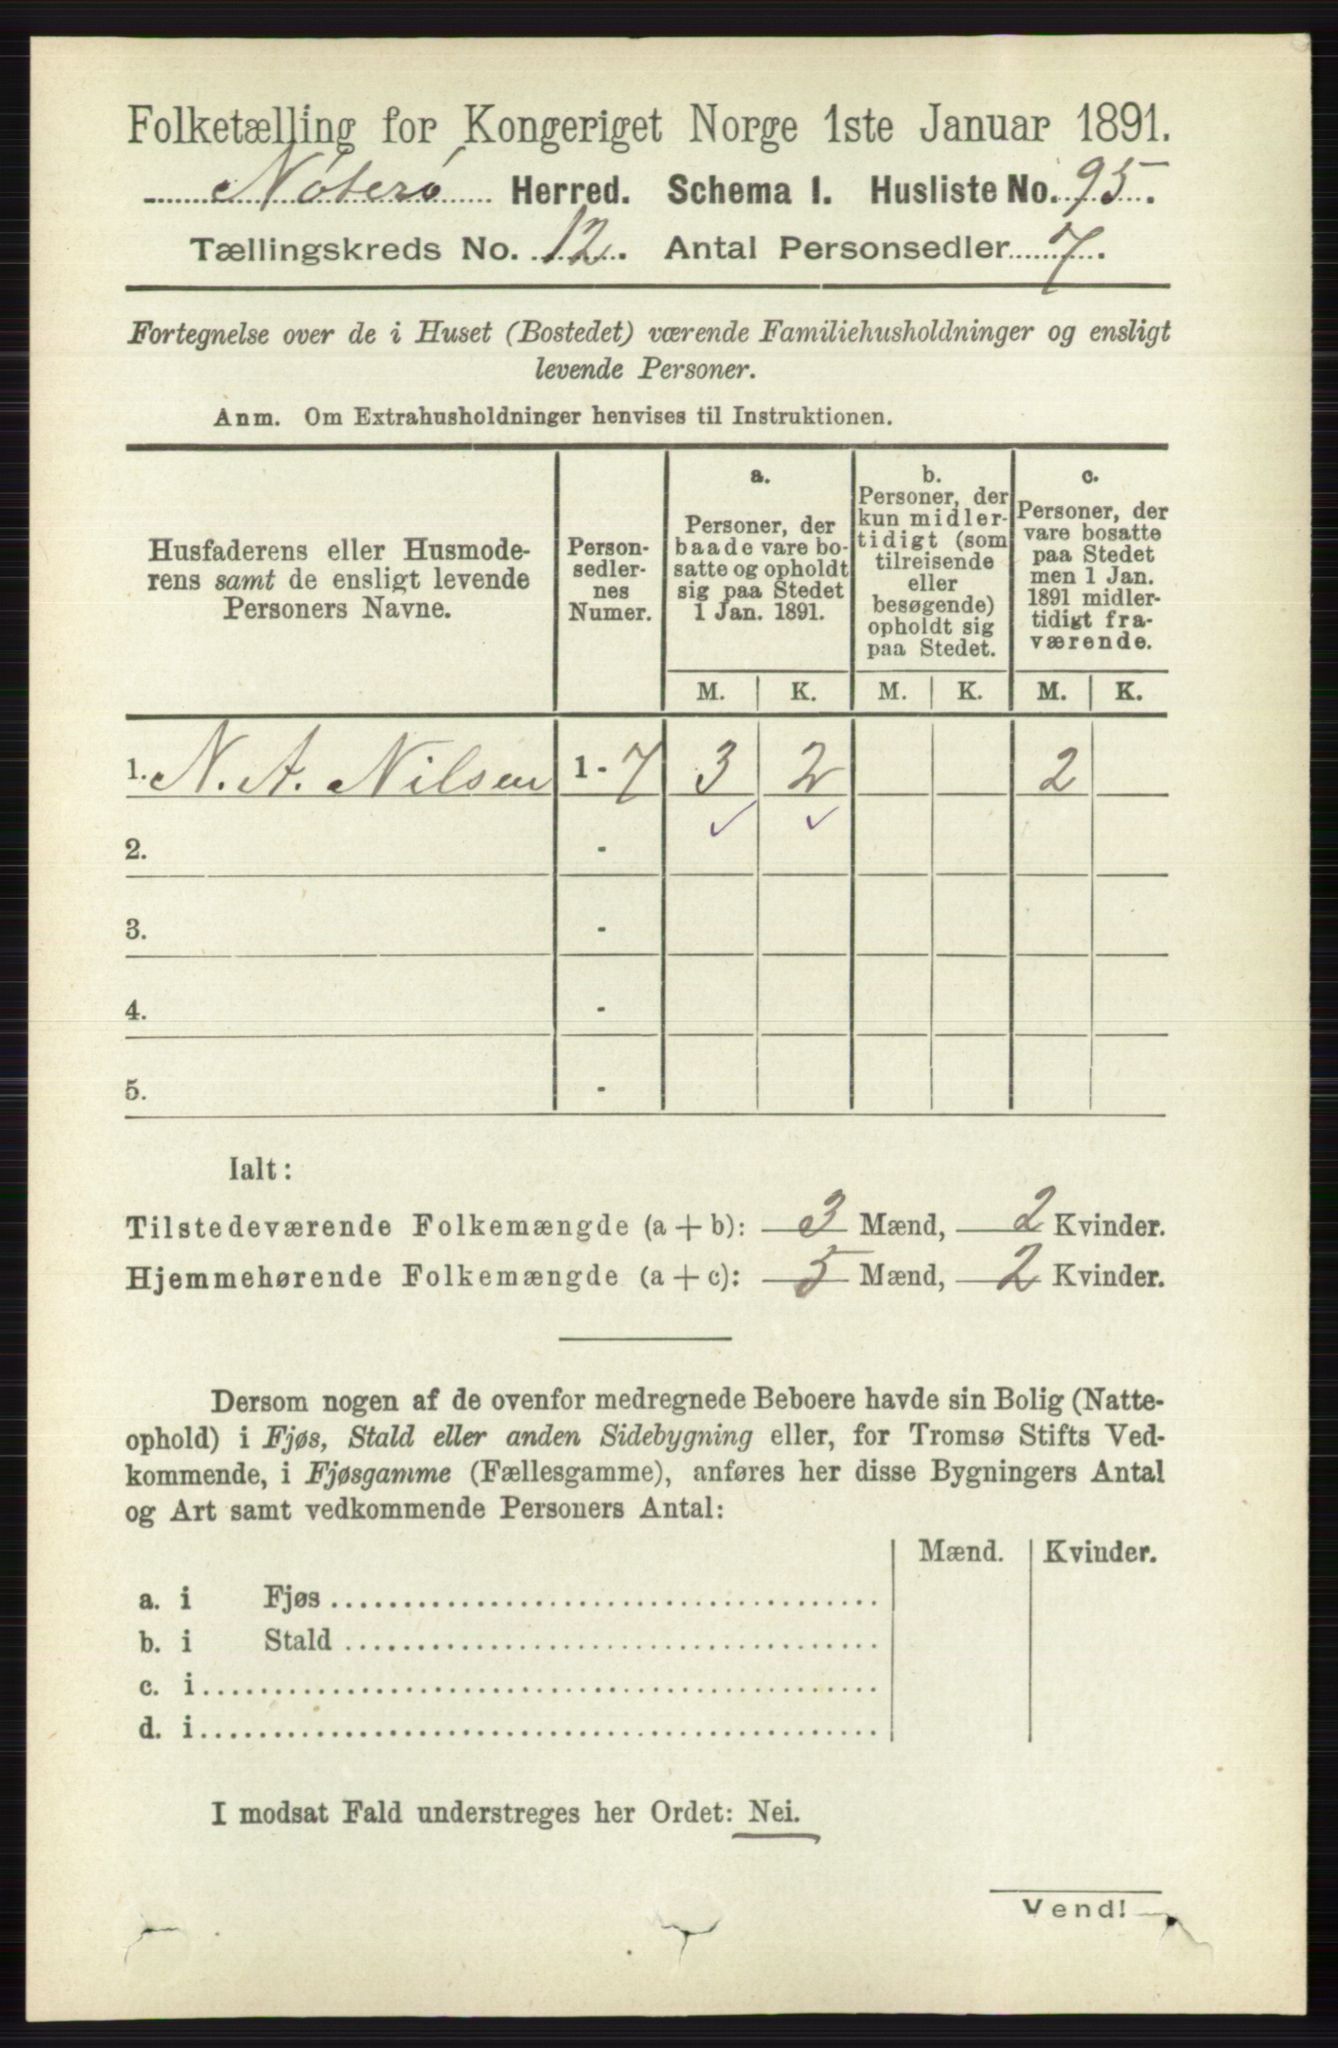 Folketælling for Kongeriget Norge 1ste Januar 1891.
Nøterø Herred. Schema I. Husliste No. 95.
Tællingskreds No. 12. Antal Personsedler 7.
Fortegnelse over de i Huset (Bostedet) værende Familiehusholdninger og ensligt
levende Personer.
Anm. Om Extrahusholdninger henvises til Instruktionen.
Husfaderens eller Husmode-
rens samt de ensligt levende
Personers Navne.
Person-
sedler-
nes
Numer.
a.
Personer, der
baade vare bo-
satte og opholdt
sig paa Stedet
1 Jan. 1891.
b.
Personer, der
kun midler-
tidigt (som
tilreisende
eller
besøgende)
opholdt sig
paa Stedet.
c.
Personer, der
vare bosatte
paa Stedet
men 1 Jan.
1891 midler-
tidigt fra-
værende.
M. K. M. K. M. K.
1. N. A. Nilsen 1 - 7 3 2 2
2. -
3. -
4. -
5. -
Ialt:
Tilstedeværende Folkemængde (a + b): 3 Mænd, 2 Kvinder.
Hjemmehørende Folkemængde (a + c): 5 Mænd, 2 Kvinder.
Dersom nogen af de ovenfor medregnede Beboere havde sin Bolig (Natte-
ophold) i Fjøs, Stald eller anden Sidebygning eller, for Tromsø Stifts Ved-
kommende, i Fjøsgamme (Fællesgamme), anføres her disse Bygningers Antal
og Art samt vedkommende Personers Antal:
Mænd. Kvinder.
a. i Fjøs
b. i Stald
c. i
d. i
I modsat Fald understreges her Ordet: Nei.
Vend!